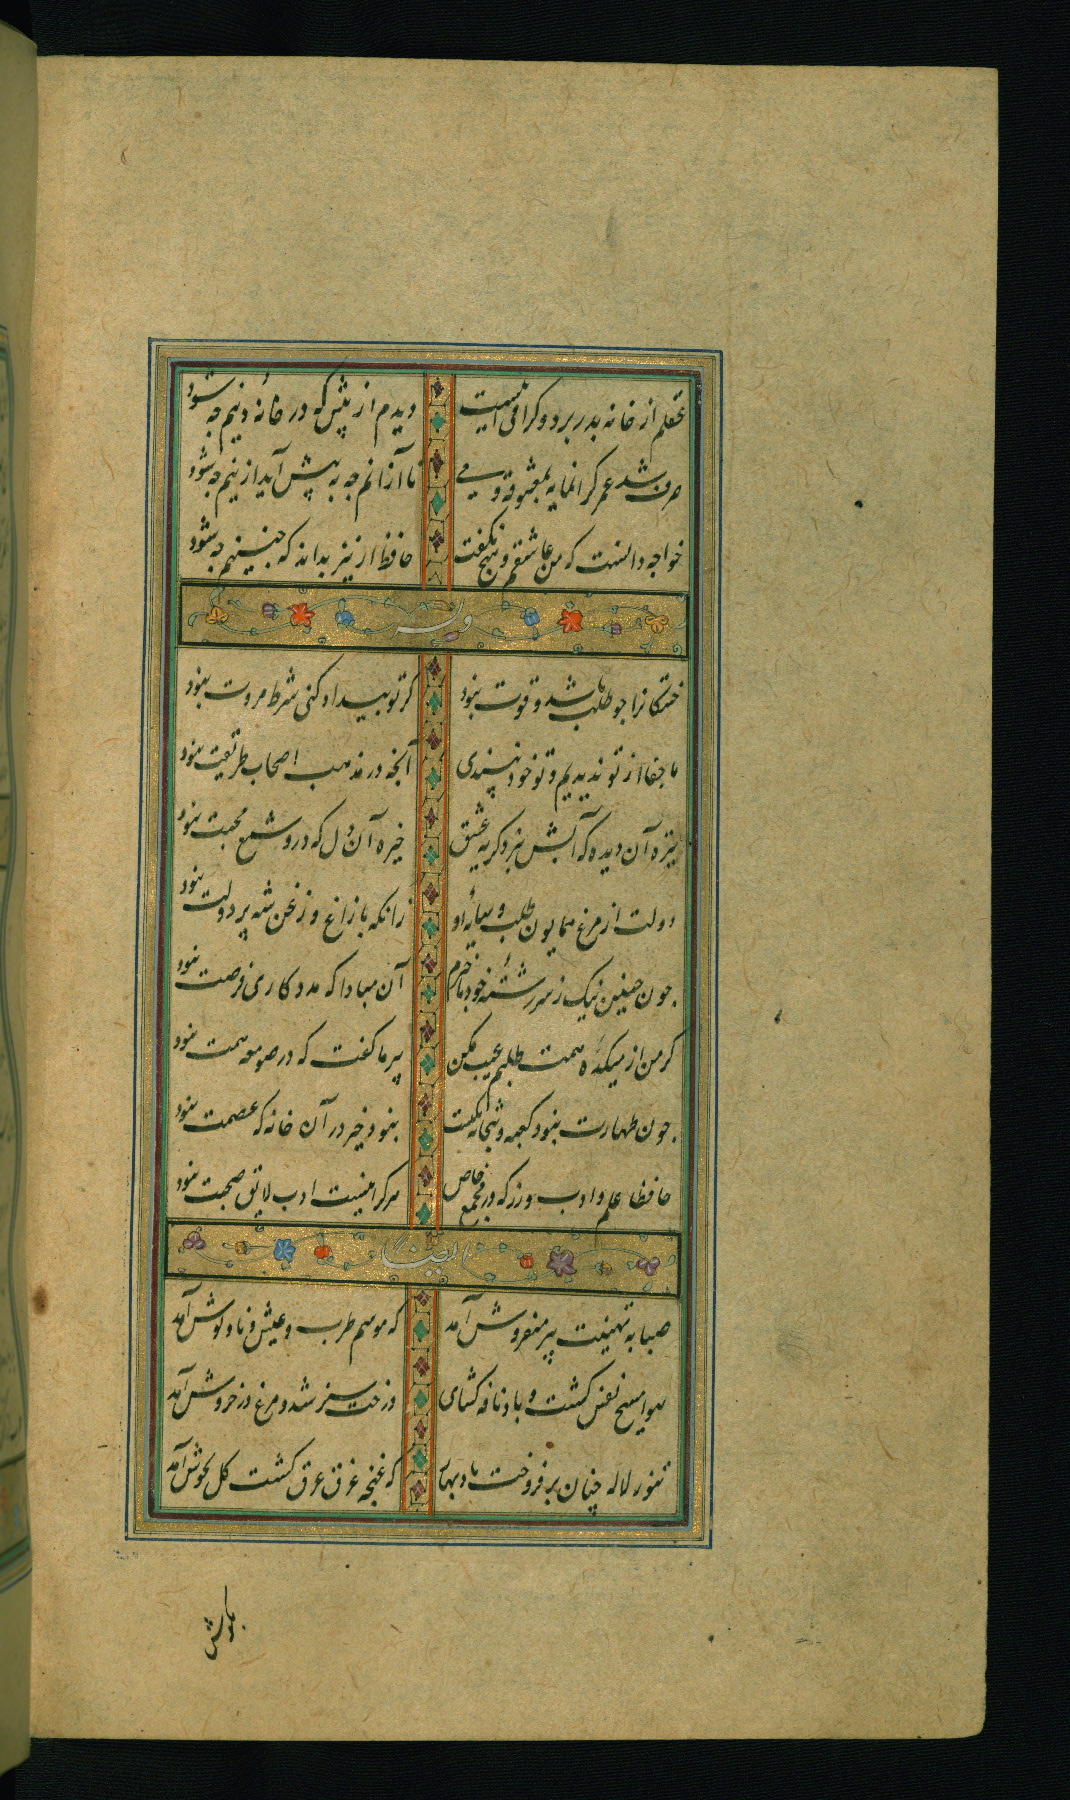 عقلم از خانه بدر برد وگر می اینست دیدم از پیش که در خانه دینم چه شود
صرف شد عمر گرانمایه بمعشوقه و می تا از آنم چه به پیش آید ازینم چه شود
خواجه دانست که من عاشقم و هیچ نگفت حافظ ار نیز بداند که چنینم چه شود
وله
خستگانرا چو طلب باشد و قوت نبود گر تو بیداد کنی شرط مروت نبود
ما جفا از تو ندیدیم و تو خود نپسندی آنچه در مذهب اصحاب طریقت نبود
تیره آن دیده که آبش نبرد گریه عشق خیره آن دل که درو شمع محبت نبود
دولت از مرغ همایون طلب و سایه او زانکه با زاغ و زغن شهپر دولت نبود
چون چنین نیک ز سررشته خود بیخبرم آن مبادا که مددکاری فرصت نبود
گر من از میکده همت طلبم عیب مکن پیر ما گفت که در صومعه همت نبود
چون طهارت نبود کعبه و بتخانه یکیست نبود خیر در آن خانه که عصمت نبود
حافظا علم و ادب ورز که در مجمع خاص هرکرا نیست ادب لایق صحبت نبود
ایضا
صبا به تهنیت پیر میفروش آمد که موسم طرب و عیش و ناز و نوش آمد
هوا مسیح نفس گشت و باد نافه گشای درخت سبز شد و مرغ در خروش آمد
تنور لاله چنان برفروخت باد بهار که غنچه غرق عرق گشت گل بجوش آمد
بهوش